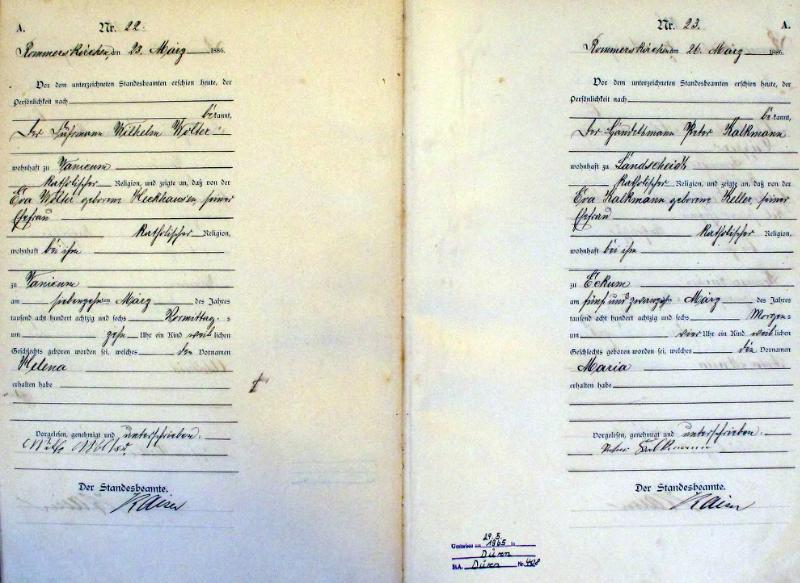 A.
Nr. 22.
Rommerskirchen, den 23. März 1886.
Vor dem unterzeichneten Standesbeamten erschien heute, der
Persönlichkeit nach
bekannt,
Der Wilhelm Wolter
wohnhaft zu Vanicum
Katholischer Religion, und zeigte an, daß von der
Eva Wolter geborenen Heckhausen, seiner
Ehefrau
Katholischer Religion,
wohnhaft bei ihm
zu Vanicum
am siebenzehn März des Jahres
tausend acht hundert achtzig und sechs Vormittags
um zehn Uhr ein Kind weiblichen
Geschlechts geboren worden sei, welches den Vornamen
Helena
erhalten habe
Vorgelesen, genehmigt und unterschrieben.
Wilh. Wolter
Der Standesbeamte.
Kaiser
Nr. 23.
A.
Rommerskirchen, den 26. März 1886.
Vor dem unterzeichneten Standesbeamten erschien heute, der
Persönlichkeit nach
bekannt,
Der Handelsmann Peter Kalkmann
wohnhaft zu Landscheidt
Katholischer Religion, und zeigte an, daß von der
Eva Kalkmann geborenen Keller, seiner
Ehefrau
Katholischer Religion,
wohnhaft bei ihm
zu Eckum
am fünf und zwanzigst März des Jahres
tausend acht hundert achtzig und sechs Morgens
um vier Uhr ein Kind weiblichen
Geschlechts geboren worden sei, welches den Vornamen
Maria
erhalten habe
Vorgelesen, genehmigt und unterschrieben.
Peter Kalkmann
Der Standesbeamte.
Kaiser
29.5.
1965 in
Düren
StA. Düren Nr. 408